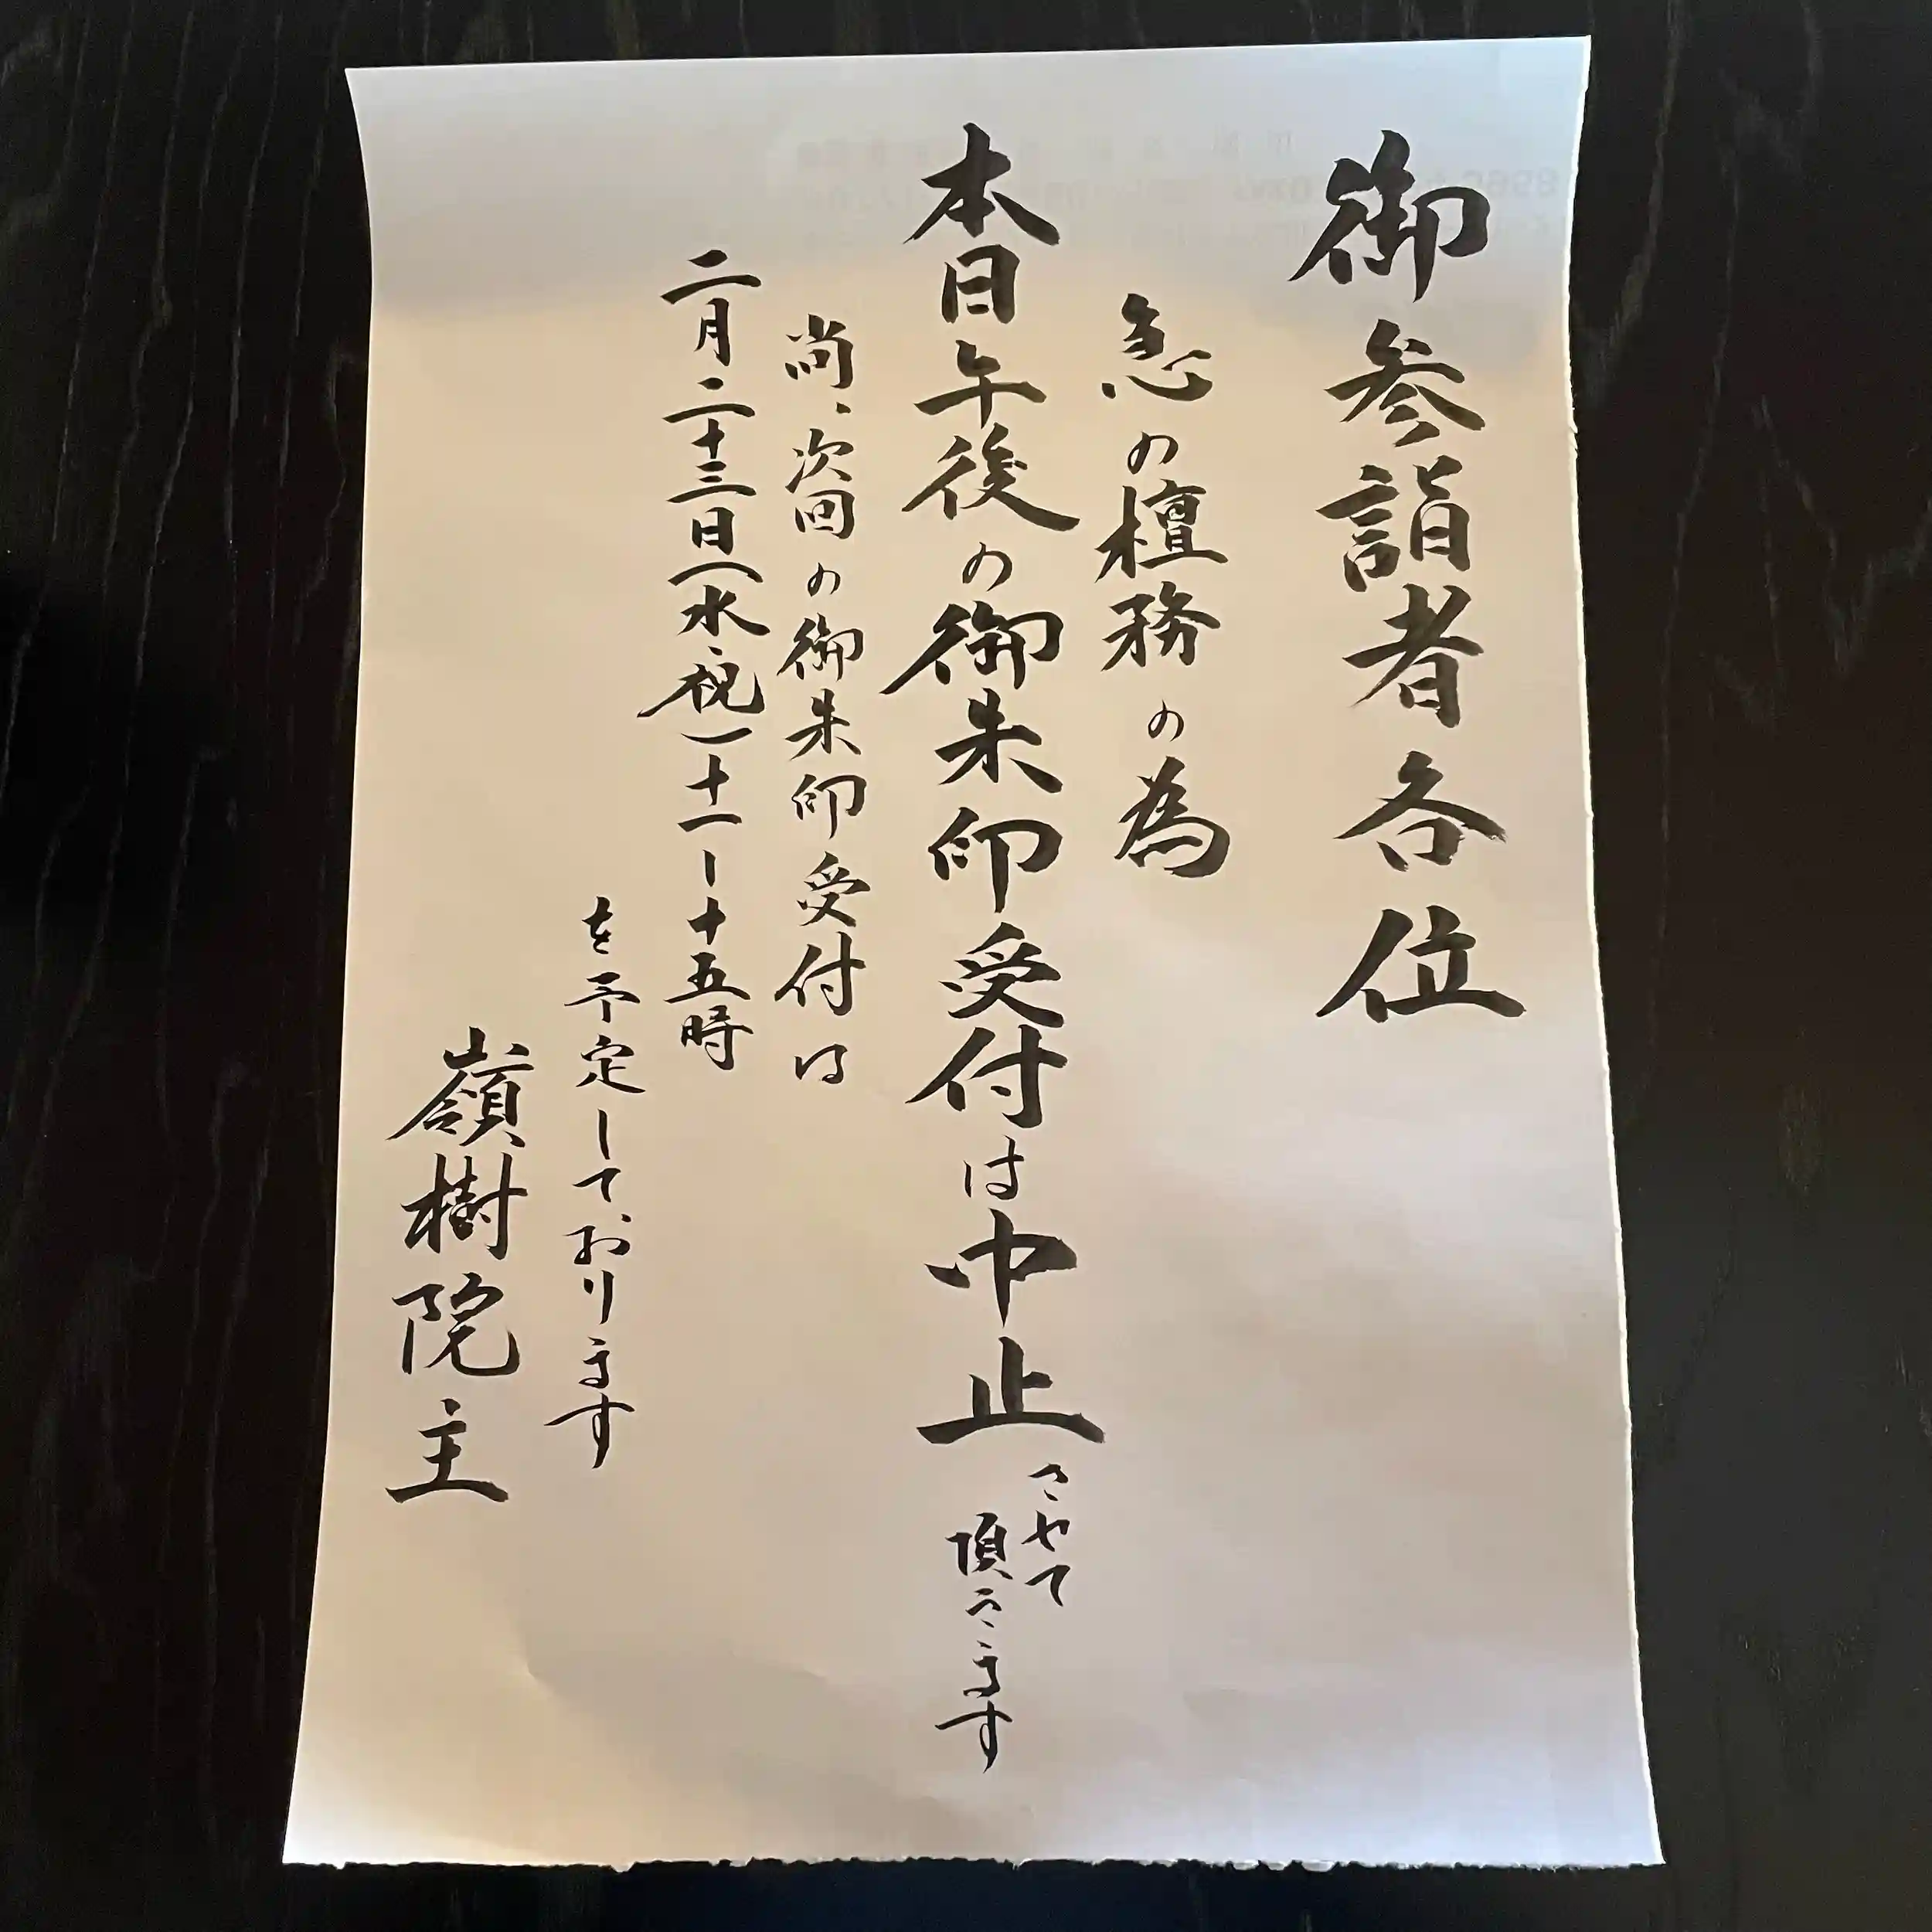 御参詣者各位
急の檀務の為
本日午後の御朱印受付は中止させて頂きます
尚、次回の御朱印受付は
二月二十三日(水・祝)十一〜十五時
を予定しております
嶺樹院主